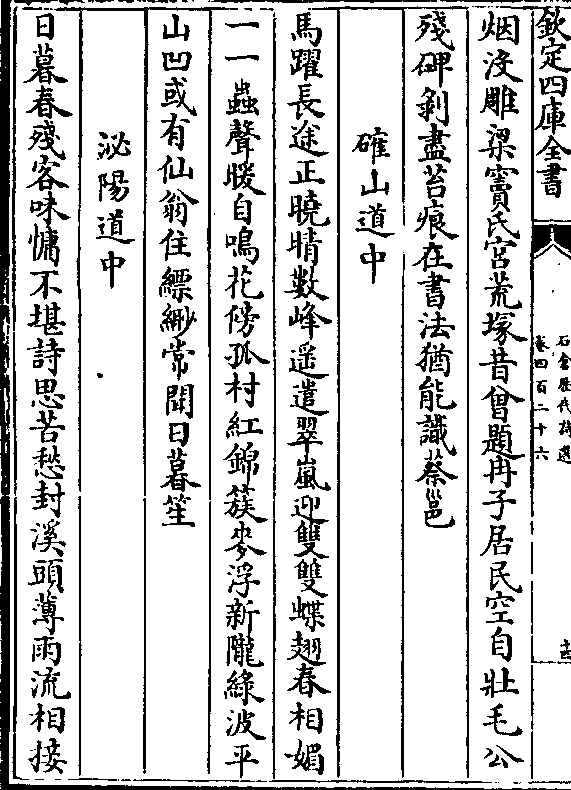 欽定四庫全書
石倉歷代詩選
卷四百二十六
烟沒雕梁竇氏宮荒塚昔曾題冉子居民空自壯毛公
殘碑剝盡苔痕在書法猶能識蔡邕
確山道中
馬躍長途正曉晴數峰遥遣翠嵐迎雙雙蝶翅春相媚
一一蟲聲暖自鳴花傍孤村紅錦簇麥浮新隴綠波平
山凹或有仙翁住縹緲常聞日暮笙
泌陽道中
日暮春殘客味慵不堪詩思苦愁封溪頭薄雨流相接